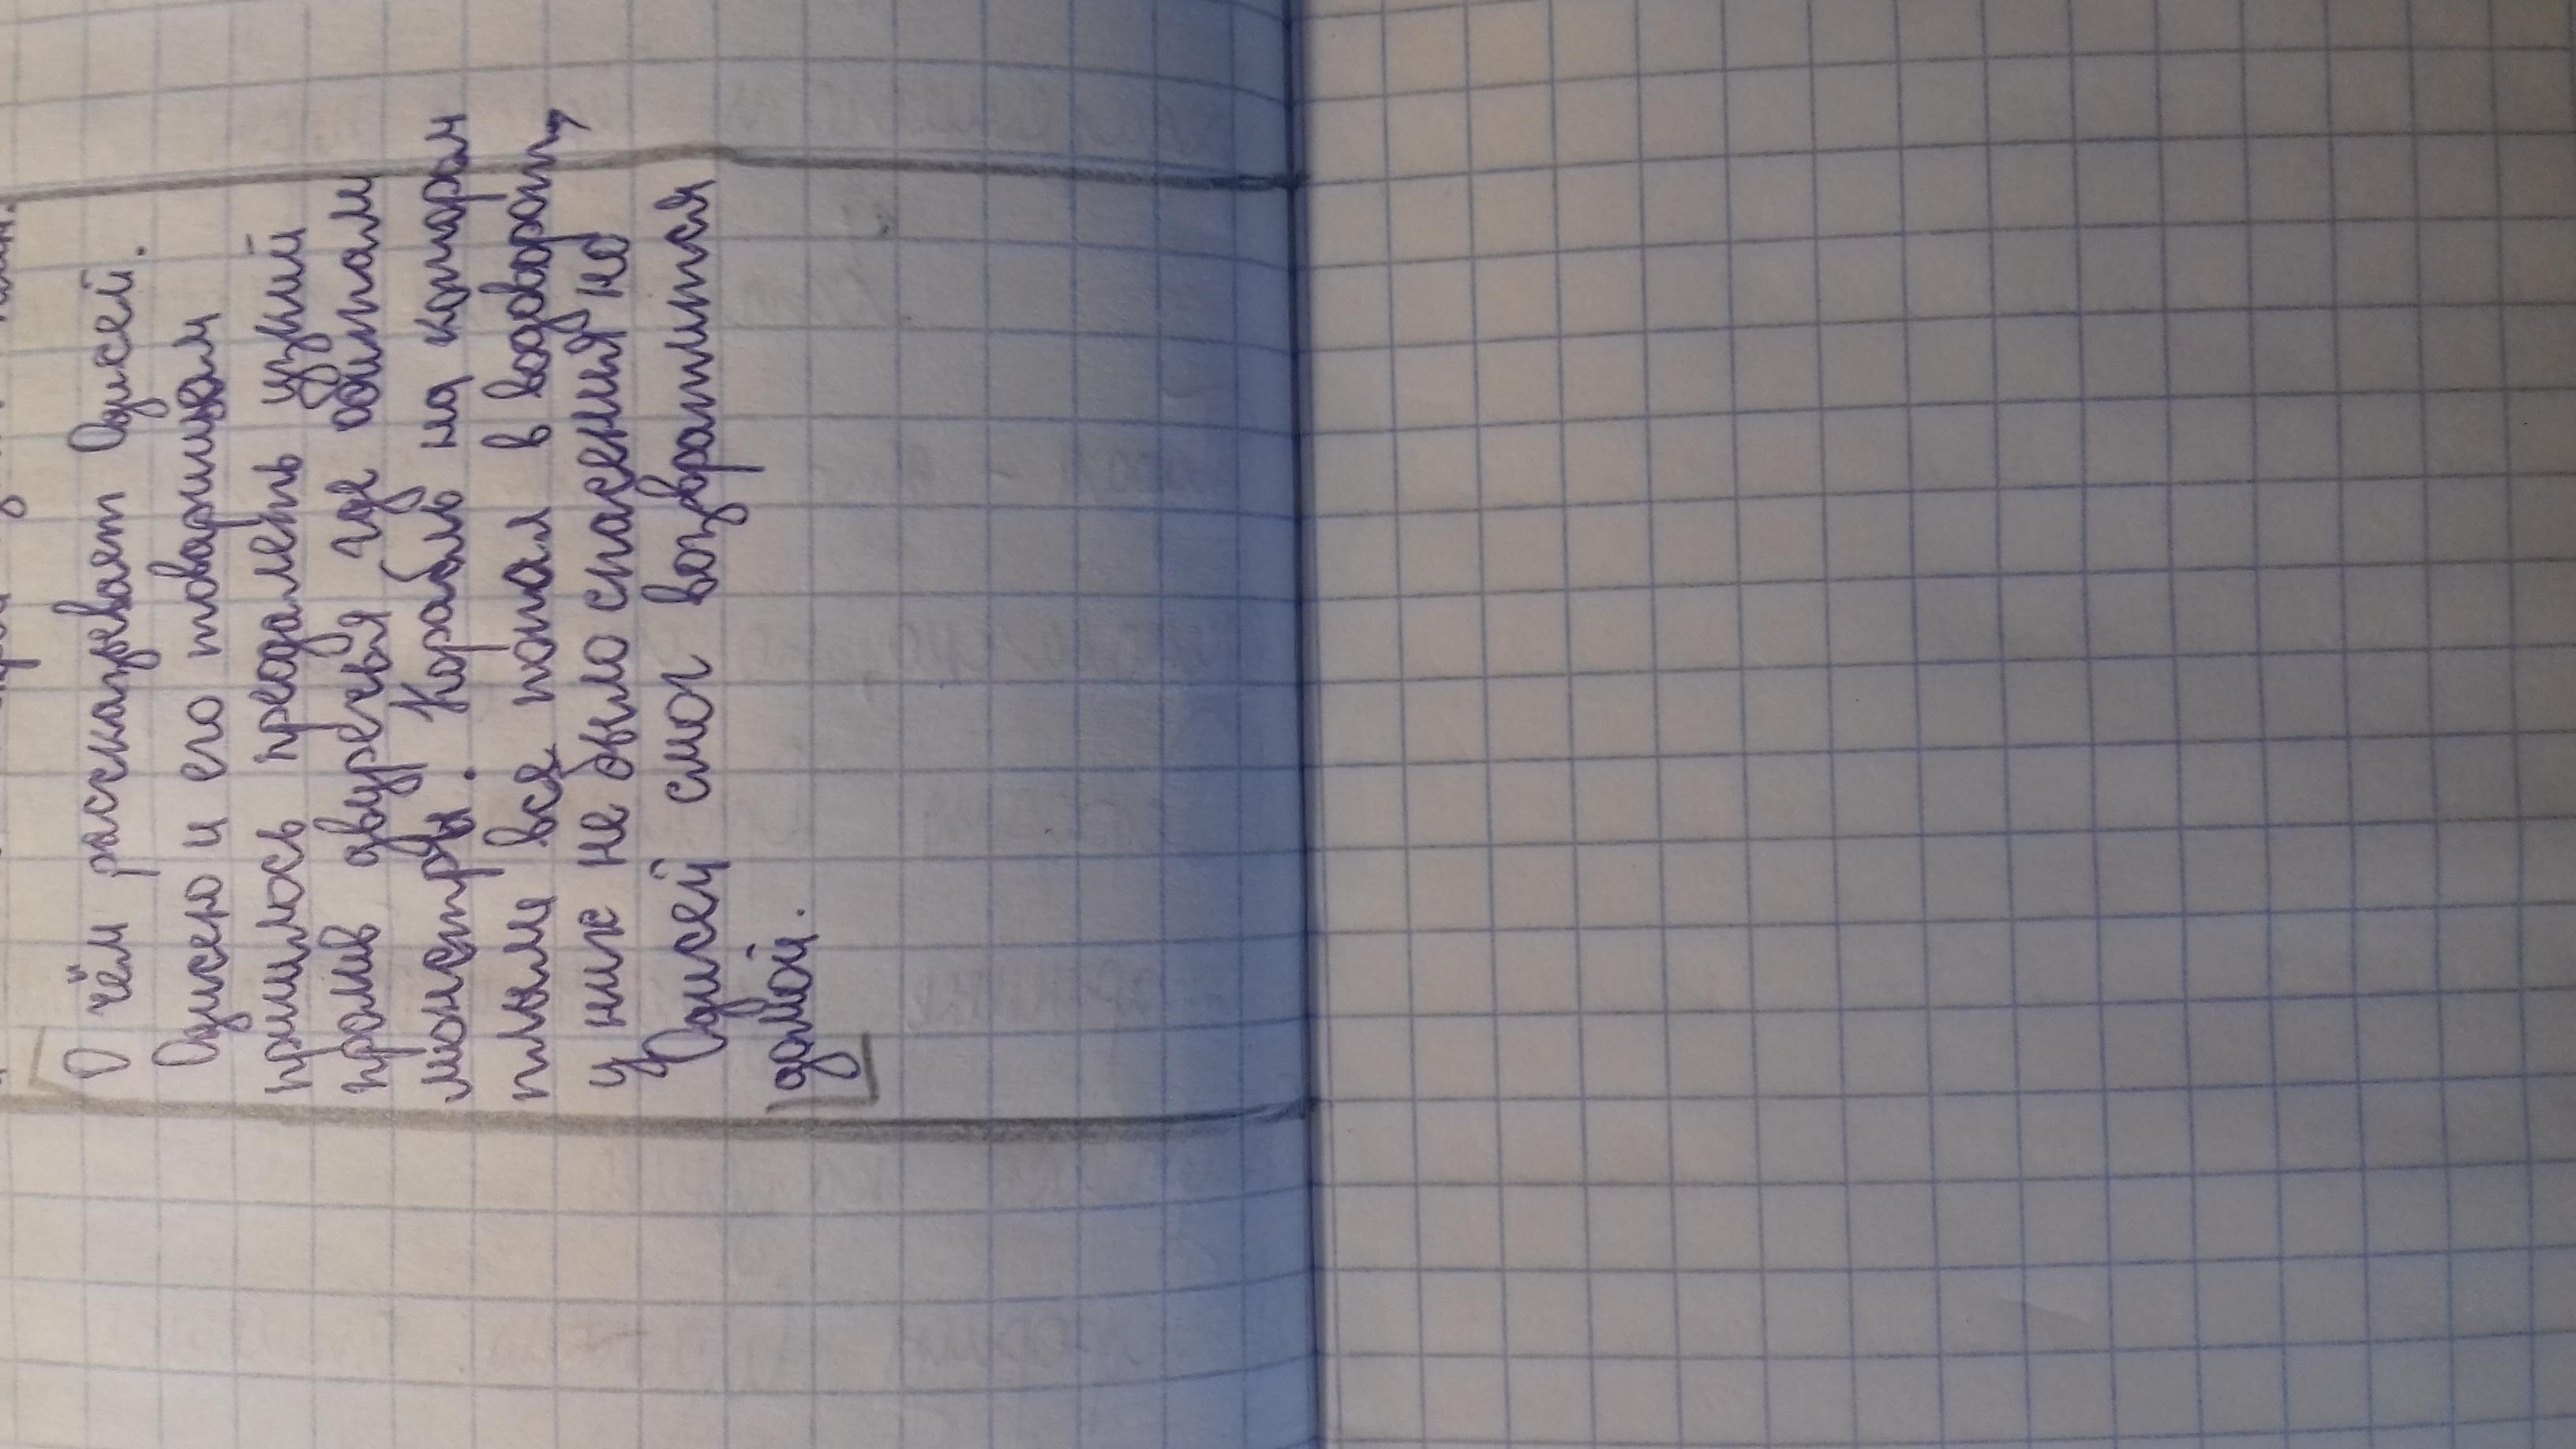 О чём рассказывает Одисей.
Одисею и его товарищам
пришлось преодалеть узкий
пролив двуречья где обитали
монстры. Корабль на котором
плыли все попал в водоворот,
у них не было спасения но
Одисей смог возвратится
домой.